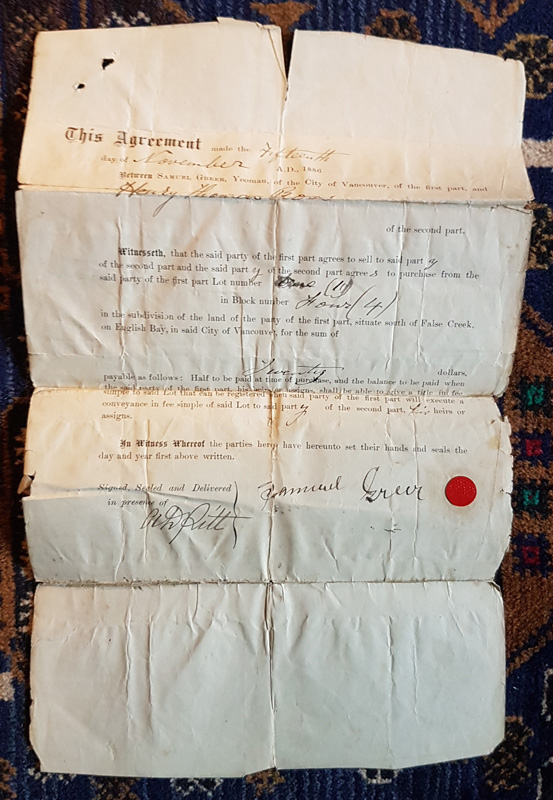 This Agreement made the Fifteenth
day of November A.D., 1886
Between SAMUEL GREER, Yeoman, of the City of Vancouver, of the first part, and
Henry Thomas
of the second part,
Witnesseth, that the said party of the first part agrees to sell to said party
of the second part and the said party of the second part agrees to purchase from the
said party of the first part Lot number
in Block number Four (4)
in the subdivision of the land of the party of the first part, situate south of False Creek,
on English Bay, in said City of Vancouver, for the sum of
Twenty dollars,
payable as follows: Half to be paid at time of purchase, and the balance to be paid when
the said party of the first part, his heirs or assigns, shall be able to give a title in fee
simple to said Lot that can be registered when said party of the first part will execute a
conveyance in fee simple of said Lot to said party of the second part, his heirs or
assigns.
In Witness Whereof the parties hereto have hereunto set their hands and seals the
day and year first above written.
Signed, Sealed and Delivered
in presence of
Samuel Greer